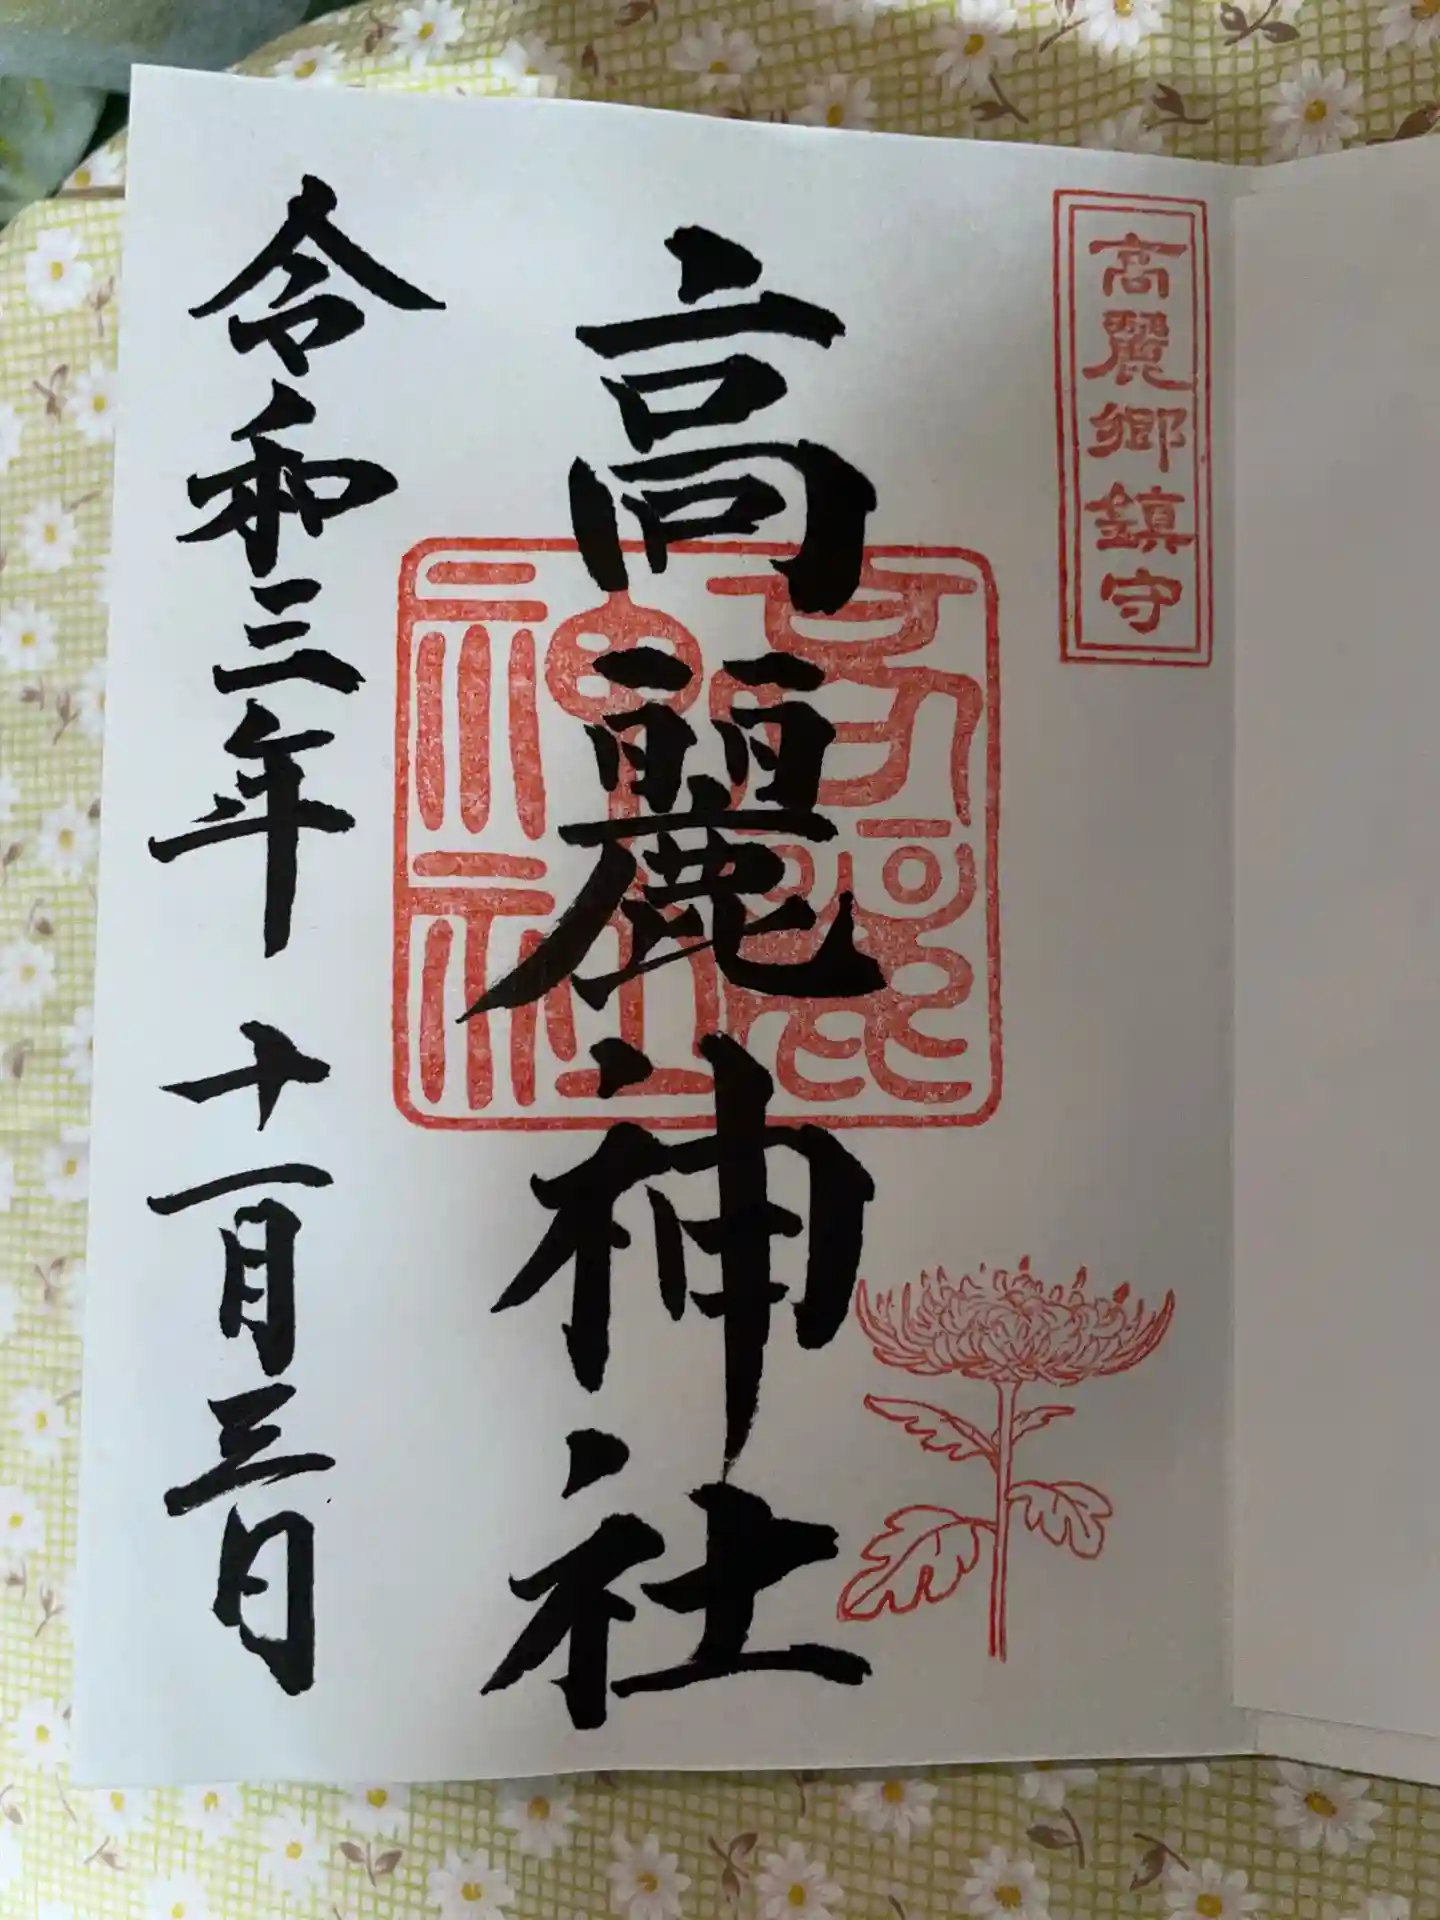 高麗郷鎮守
高麗神社
高麗神社
令和三年十一月三日